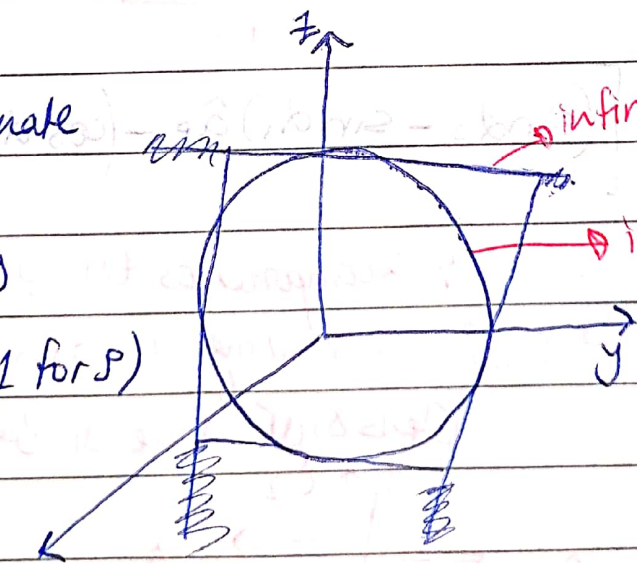 z
nate
infin
i
1 for ρ)
y